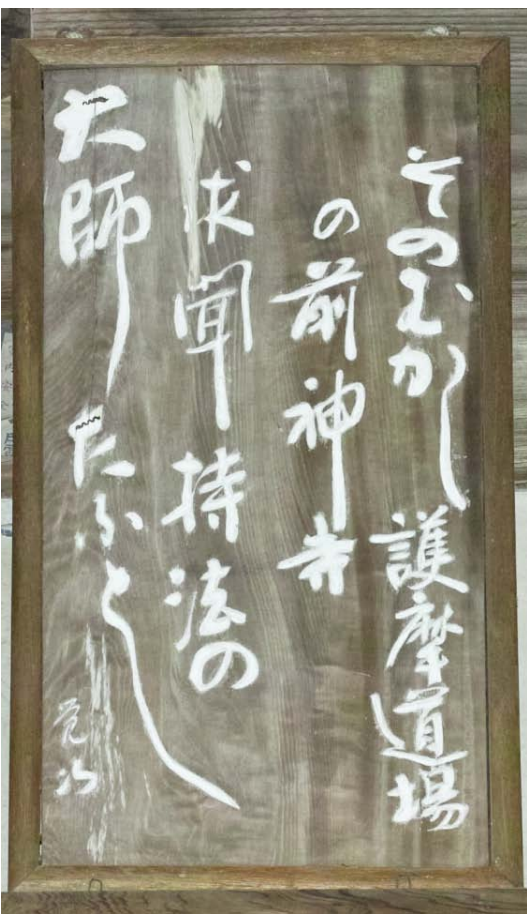 そのむかし 護摩道場
の前神寺
求聞持法の
大師たふとし